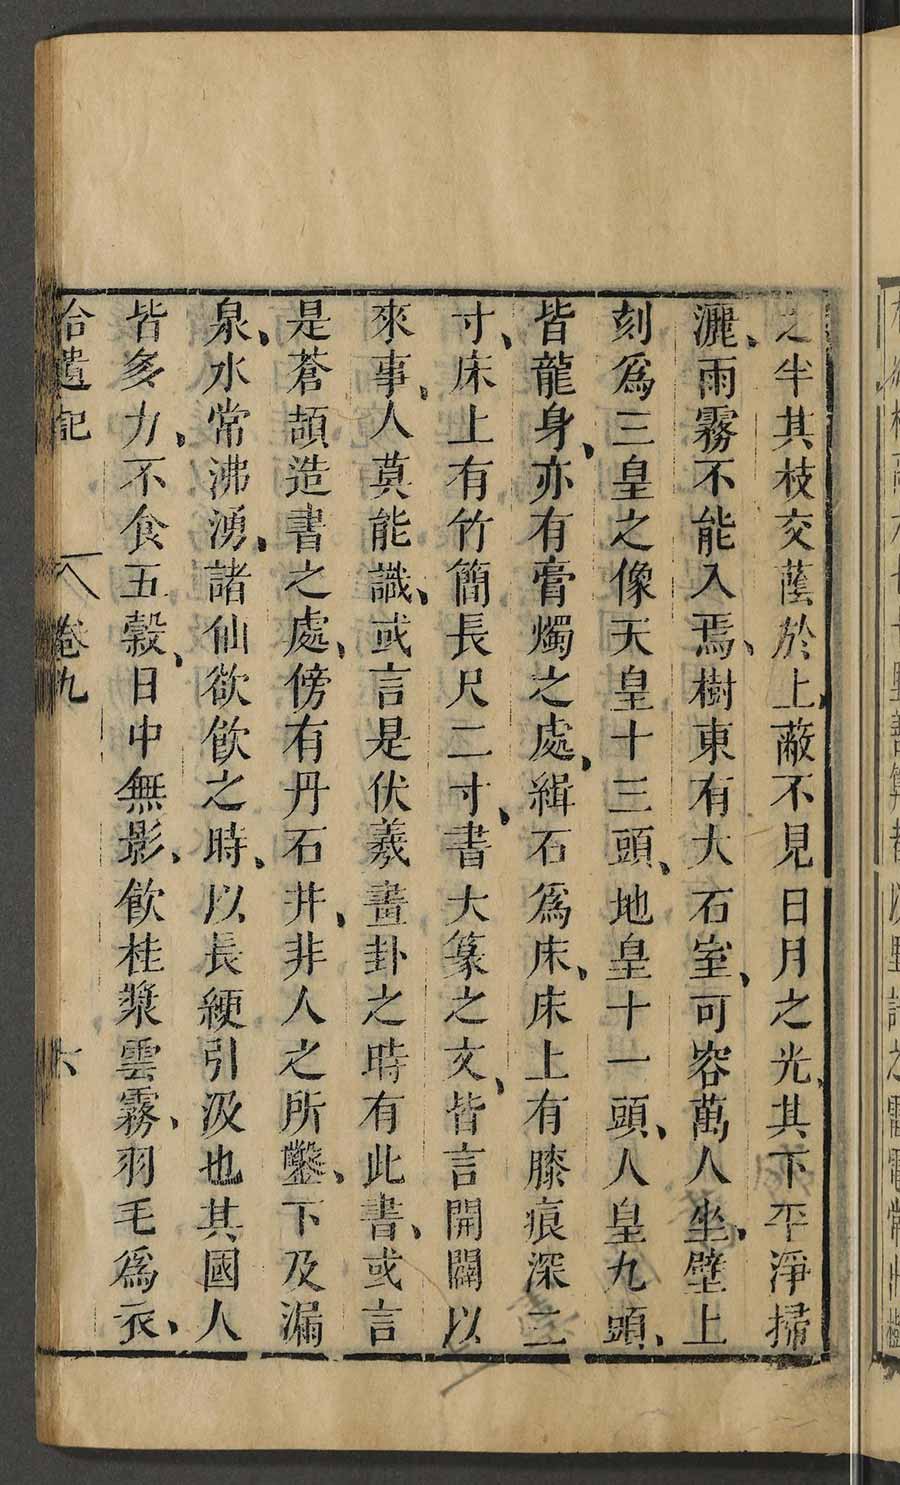 之半其枝交䕃於上蔽不見日月之光其下平淨掃
灑雨霧不能入焉樹東有大石室可容萬人坐壁上
刻爲三皇之像天皇十三頭地皇十一頭人皇九頭
皆龍身亦有膏燭之處緝石爲床床上有膝痕深二
寸床上有竹簡長尺二寸書大篆之文皆言開闢以
來事人莫能識或言是伏羲畫卦之時有此書或言
是蒼頡造書之處傍有丹石井非人之所鑿下及漏
泉水常沸湧諸仙欲飮之時以長綆引汲也其國人
皆多力不食五穀日中無影飮桂漿雲霧羽毛爲衣
拾遺記 卷九 六